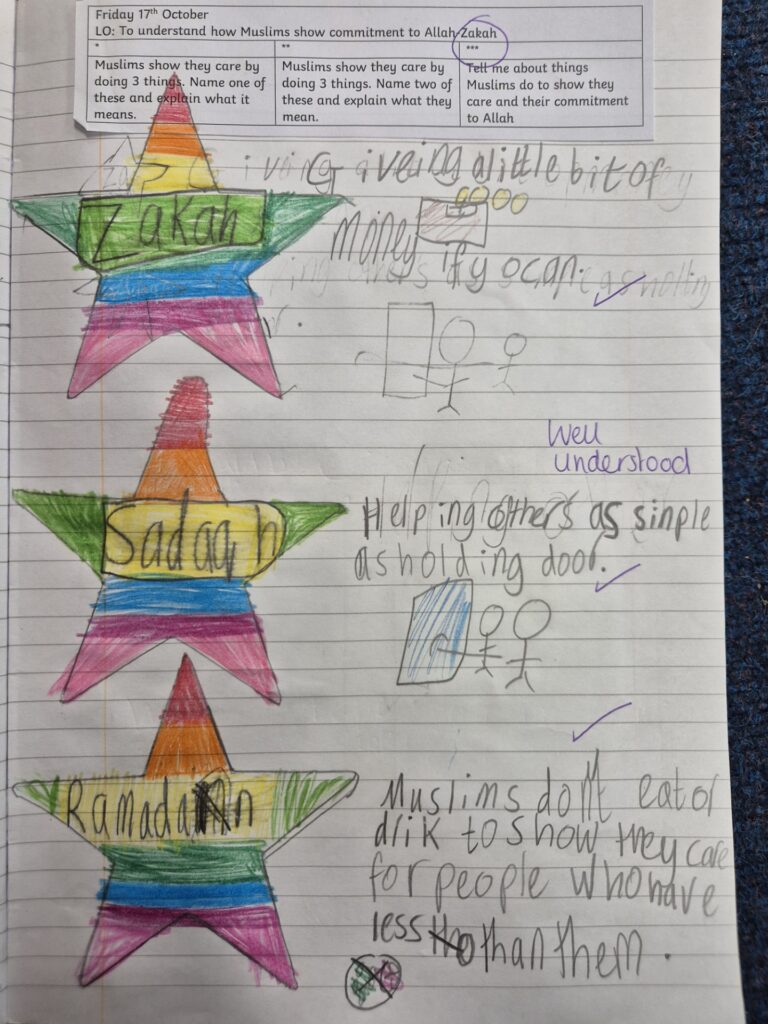 Friday 17th October
LO: To understand how Muslims show commitment to Allah-Zakah
*
**
***
Muslims show they care by
doing 3 things. Name one of
these and explain what it
means.
Muslims show they care by
doing 3 things. Name two of
these and explain what they
mean.
Tell me about things
Muslims do to show they
care and their commitment
to Allah
Zakah
Giveing a little bit of
money if yocan.
Well
understood
Sadaqh
Helping others as sinple
as holding door.
Ramadan
Muslims don't eat or
drik to show they care
for people who have
less than them.